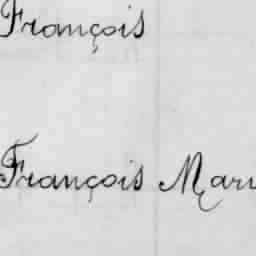 François
François Mari